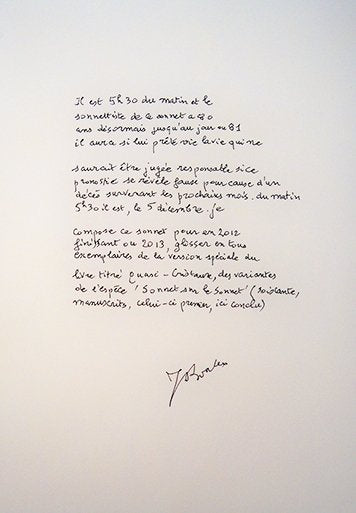 Il est 5h30 du matin et le
sonnettiste de ce sonnet a 80
ans désormais jusqu'au jour où 81
il aura si lui prête vie la vie qui ne
saurait être jugée responsable si ce
pronostic se révèle faux pour cause d'un
décès survenant les prochains mois. du matin
5h30 il est, le 5 décembre. je
compose ce sonnet pour en 2012
finissant ou 2013, glisser en tous
exemplaires de la version spéciale du
livre titré Quasi-Cristaux, des variantes
de l'espèce 'Sonnet sur le Sonnet' (soixante,
manuscrits, celui-ci premier, ici conclu)